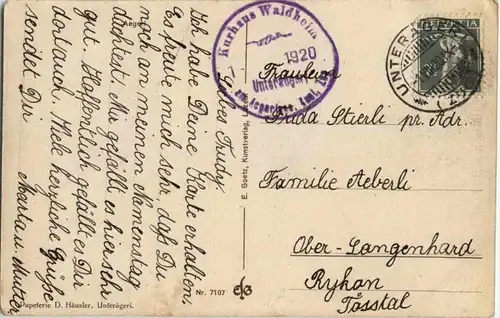 Liebes Trudy!
Ich habe Deine Karte erhalten.
Es freut mich sehr, daß Du
noch an meinen Namenstag
dachtest. Mir gefällt es hier sehr
gut. Hoffentlich gefällt es Dir
dort auch. Viele herzliche Grüße
sendet Dir
Marta u. Mutter
Aegeri
Papeterie D. Häusler, Unterägeri.
Nr. 7107
E. Goetz, Kunstverlag,
Kurhaus Waldheim
1920
Unterägeri
HELVETIA
UNTERÄGERI
Fräulein
Frida Stierli pr. Adr.
Familie Aeberli
Ober-Langenhard
Rykon
Tösstal